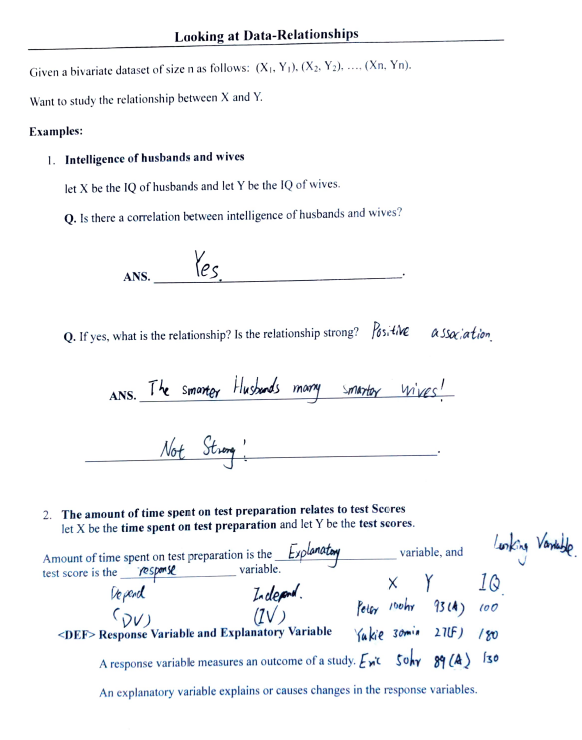 Looking at Data-Relationships
Given a bivariate dataset of size n as follows: (X₁, Y₁), (X₂, Y₂), …. (Xn, Yn).
Want to study the relationship between X and Y.
Examples:
1. Intelligence of husbands and wives
let X be the IQ of husbands and let Y be the IQ of wives.
Q. Is there a correlation between intelligence of husbands and wives?
ANS. Yes.
Q. If yes, what is the relationship? Is the relationship strong? Positive association.
ANS. The smarter Husbands marry smarter wives!
Not Strong!
2. The amount of time spent on test preparation relates to test Scores
let X be the time spent on test preparation and let Y be the test scores.
Lurking Variable.
Amount of time spent on test preparation is the Explanatory variable, and
test score is the response variable.
Depend Independ. X Y IQ
(DV) (IV) Peter 100hr 93(A) 100
<DEF> Response Variable and Explanatory Variable Yukie 30min 27(F) 180
A response variable measures an outcome of a study. Eric 50hr 89(A) 130
An explanatory variable explains or causes changes in the response variables.